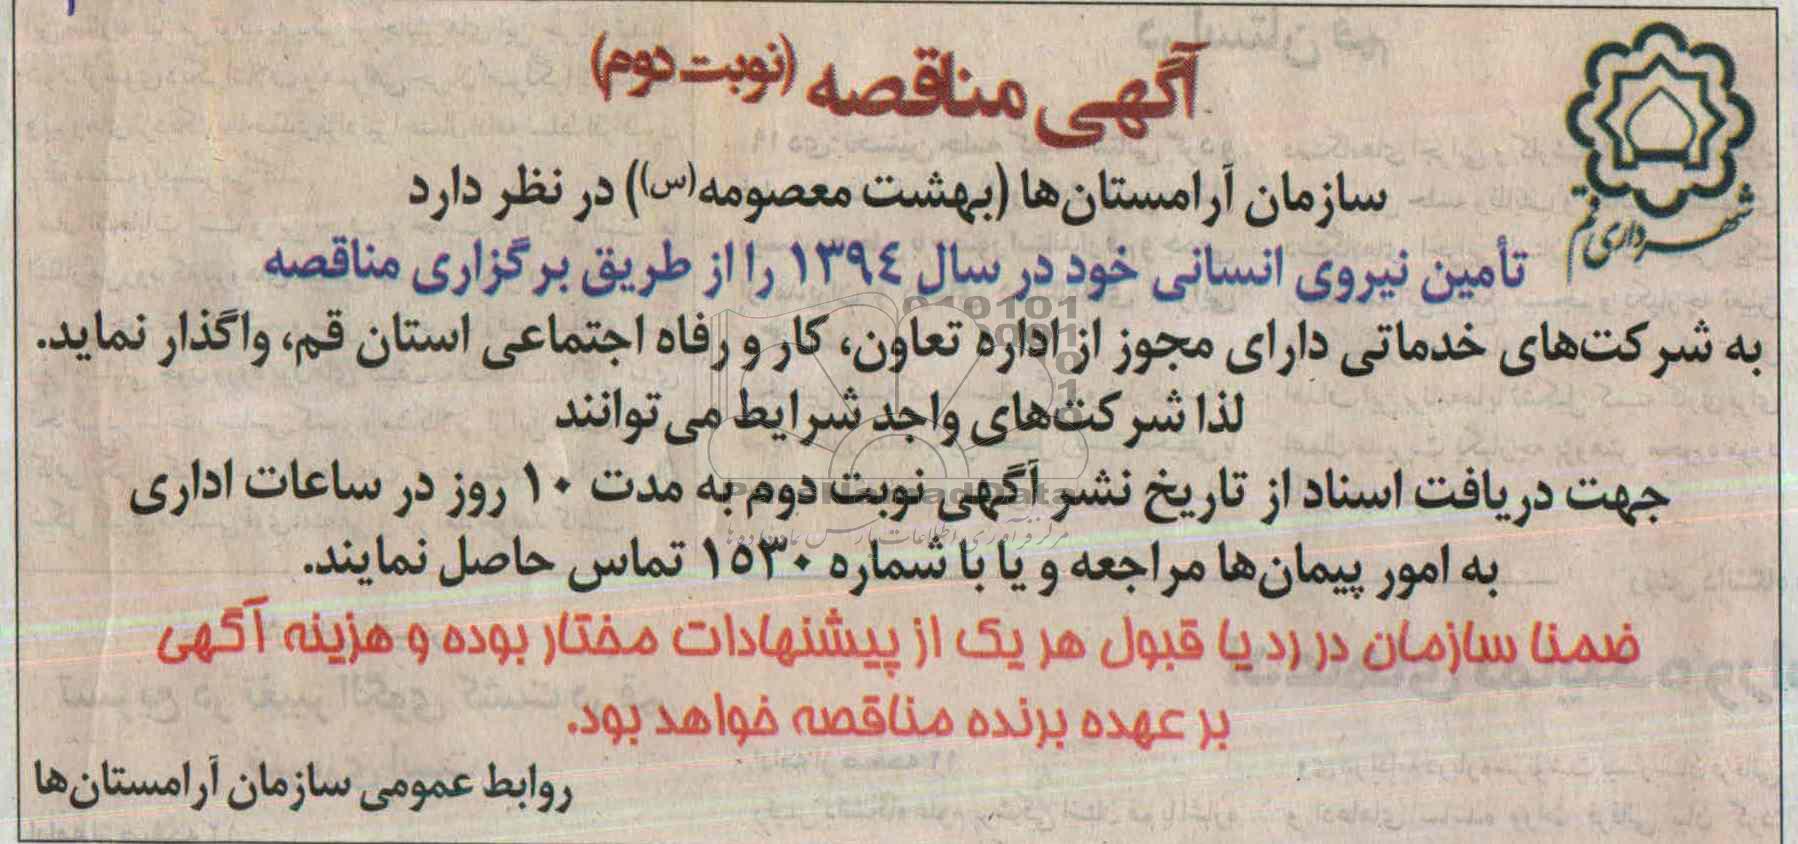 آگهی مناقصه (نوبت دوم)
شهرداری قم
سازمان آرامستان‌ها (بهشت معصومه(س)) در نظر دارد
تأمین نیروی انسانی خود در سال ۱۳۹٤ را از طریق برگزاری مناقصه
به شرکت‌های خدماتی دارای مجوز از اداره تعاون، کار و رفاه اجتماعی استان قم، واگذار نماید.
لذا شرکت‌های واجد شرایط می‌توانند
جهت دریافت اسناد از تاریخ نشر آگهی نوبت دوم به مدت ۱۰ روز در ساعات اداری
به امور پیمان‌ها مراجعه و یا با شماره ۱۵۳۰ تماس حاصل نمایند.
ضمنا سازمان در رد یا قبول هر یک از پیشنهادات مختار بوده و هزینه آگهی
بر عهده برنده مناقصه خواهد بود.
روابط عمومی سازمان آرامستان‌ها